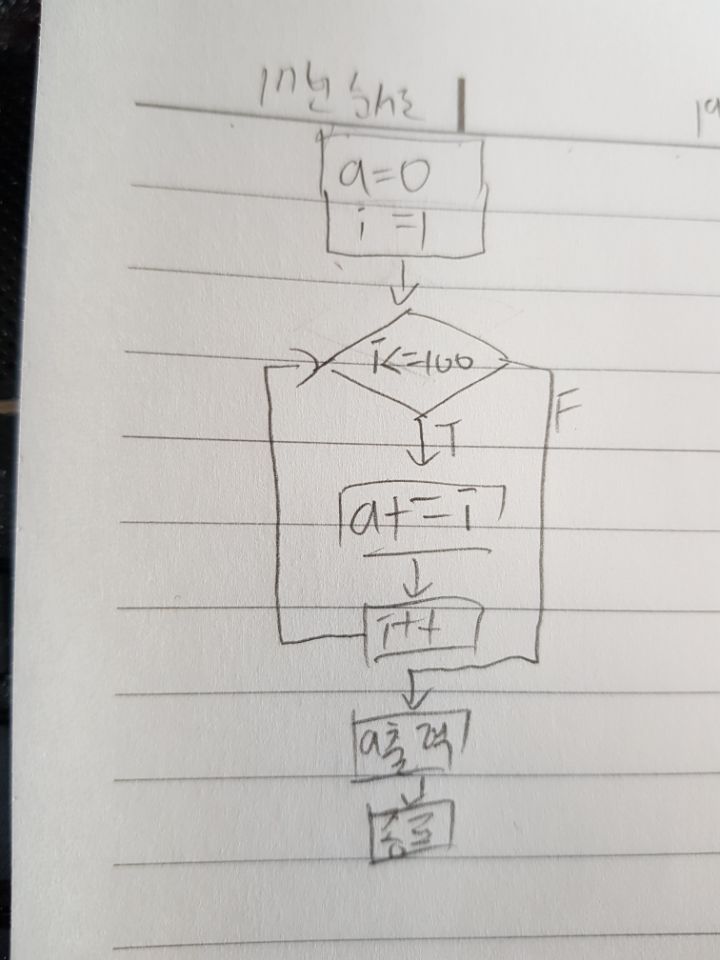 17번 순서도
19
a=0
i=1
i<=100
T
F
a+=i
i++
a출력
종료